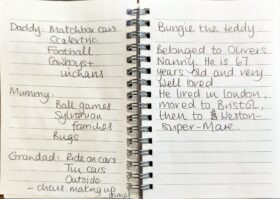 Daddy: Matchbox cars
Scalextric
Football
Cowboys +
indians
Mummy:
Ball games
Sylvanian
families
Bugs
Grandad: Ride on cars
Tin cars
Outside
- chase, making up
game
Bungie the teddy
Belonged to Olivers
Nanny. He is 67
years old and very
well loved.
He lived in London,
moved to Bristol,
then to Weston-
super-Mare.